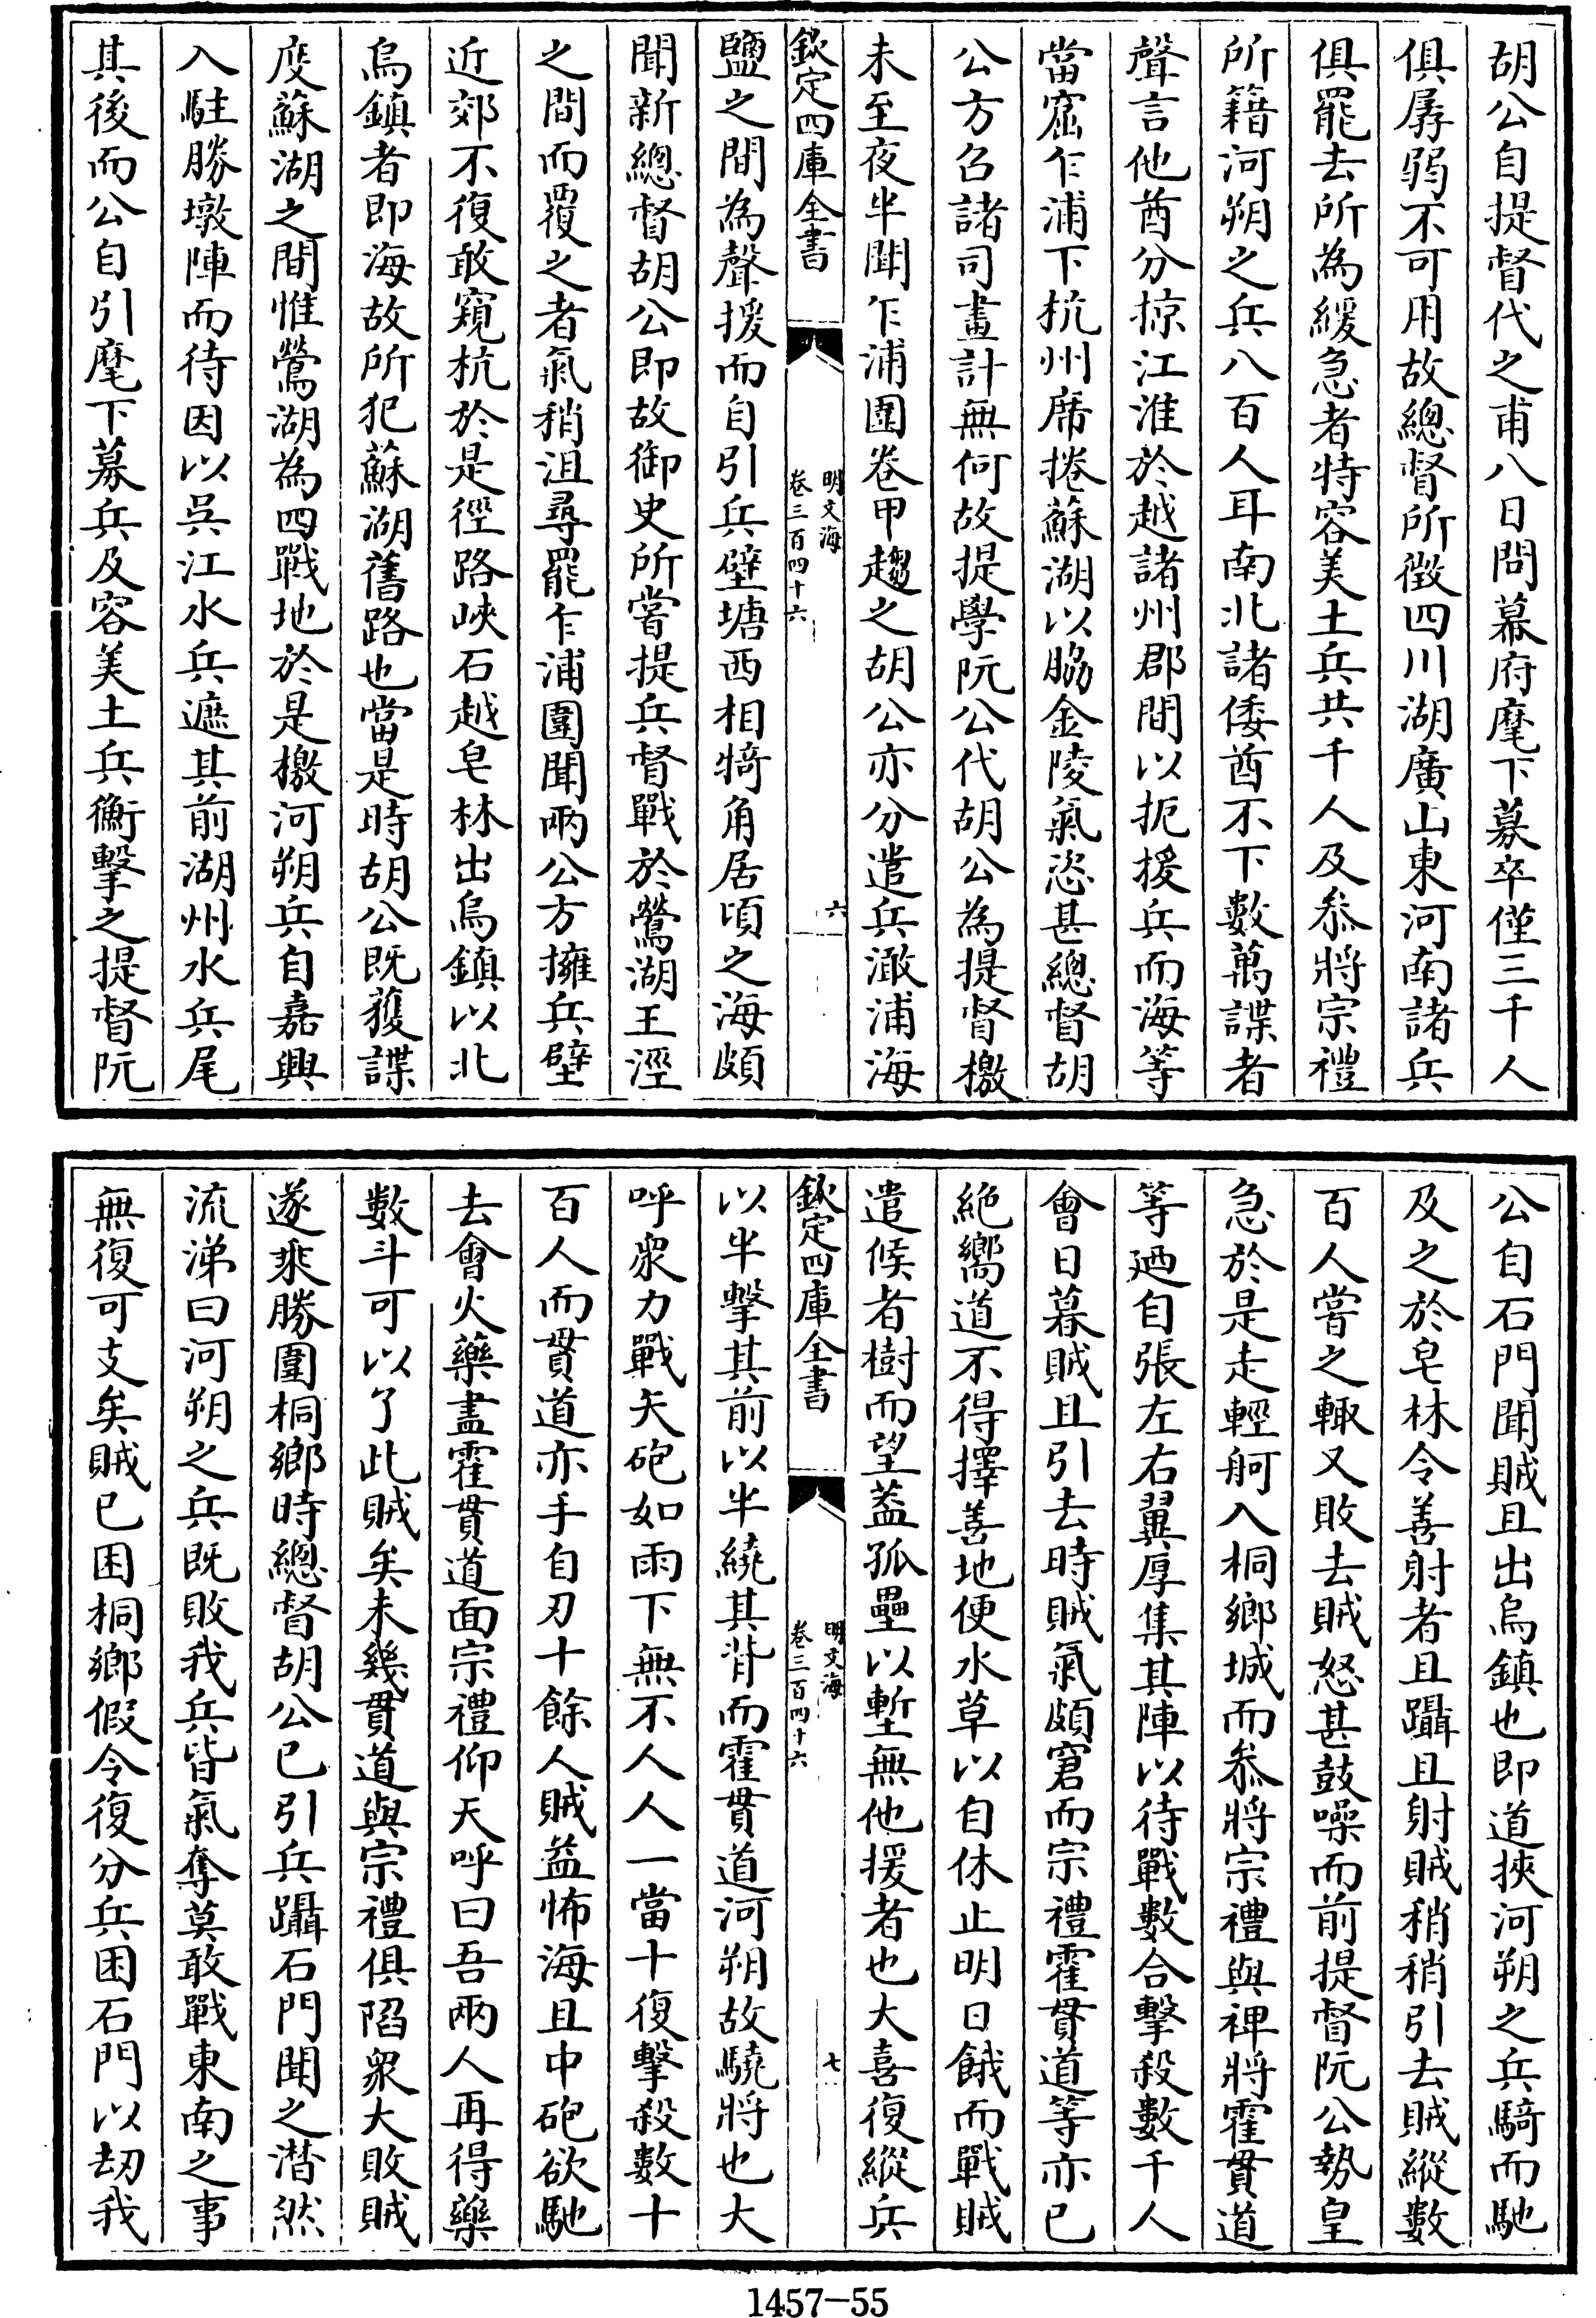 胡公自提督代之甫八日問幕府麾下募卒僅三千人
俱孱弱不可用故總督所徴四川湖廣山東河南諸兵
俱罷去所為緩急者特容美土兵共千人及叅將宗禮
所籍河朔之兵八百人耳南北諸倭酋不下數萬諜者
聲言他酋分掠江淮於越諸州郡間以扼援兵而海等
當窟乍浦下杭州席捲蘇湖以脇金陵氣恣甚總督胡
公方召諸司畫計無何故提學阮公代胡公為提督檄
未至夜半聞乍浦圍卷甲趨之胡公亦分遣兵澉浦海
欽定四庫全書
明文海
卷三百四十六
六
鹽之間為聲援而自引兵壁塘西相犄角居頃之海頗
聞新總督胡公即故御史所嘗提兵督戰於鶯湖王涇
之間而覆之者氣稍沮尋罷乍浦圍聞兩公方擁兵壁
近郊不復敢窺杭於是徑路峽石越皂林出烏鎮以北
烏鎮者即海故所犯蘇湖舊路也當是時胡公既獲諜
度蘇湖之間惟鶯湖為四戰地於是檄河朔兵自嘉興
入駐勝墩陣而待因以吳江水兵遮其前湖州水兵尾
其後而公自引麾下募兵及容美土兵衝擊之提督阮
公自石門聞賊且出烏鎮也即道挾河朔之兵騎而馳
及之於皂林令善射者且躡且射賊稍稍引去賊縱數
百人嘗之輙又敗去賊怒甚鼓噪而前提督阮公勢皇
急於是走輕舸入桐鄉城而叅將宗禮與禆將霍貫道
等廼自張左右翼厚集其陣以待戰數合擊殺數千人
會日暮賊且引去時賊氣頗窘而宗禮霍貫道等亦已
絶嚮道不得擇善地便水草以自休止明日餓而戰賊
遣候者樹而望葢孤壘以塹無他援者也大喜復縱兵
欽定四庫全書
明文海
卷三百四十六
七
以半擊其前以半繞其背而霍貫道河朔故驍將也大
呼衆力戰矢砲如雨下無不人人一當十復擊殺數十
百人而貫道亦手自刃十餘人賊益怖海且中砲欲馳
去會火藥盡霍貫道面宗禮仰天呼曰吾兩人再得藥
數斗可以了此賊矣未幾貫道與宗禮俱陷衆大敗賊
遂乘勝圍桐鄉時總督胡公已引兵躡石門聞之潸然
流涕曰河朔之兵既敗我兵皆氣奪莫敢戰東南之事
無復可支矣賊已困桐鄉假令復分兵困石門以刼我
1457-55